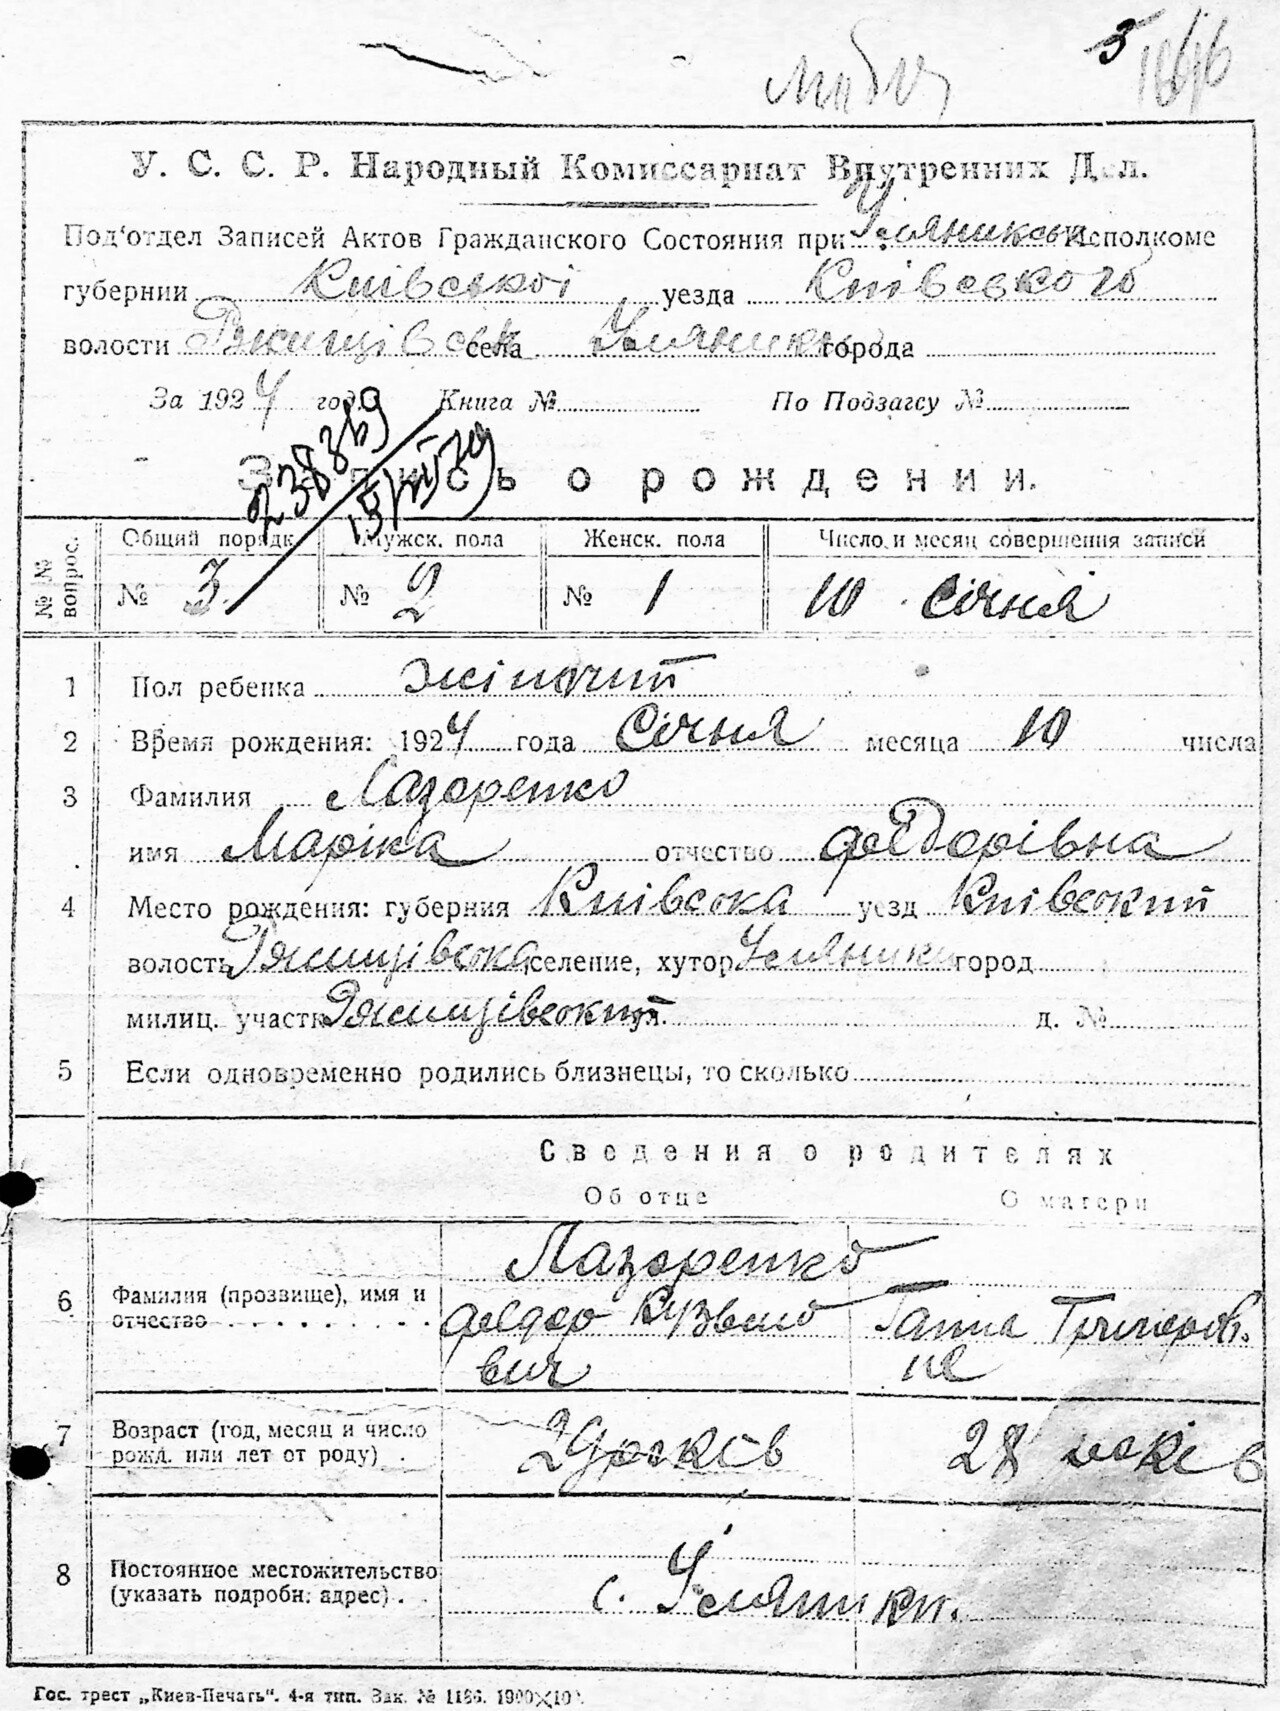 5
У. С. С. Р. Народный Комиссариат Внутренних Дел.
Под‘отдел Записей Актов Гражданского Состояния при Уляникськ Исполкоме
губернии Київської уезда Київського
волости Ржищівськ села Уляники города
За 1924 год. Книга № По Подзагсу №
238369
15/XII 79
Запись о рождении.
№ № вопрос. Общий порядк. Мужск. пола Женск. пола Число и месяц совершения записи
№ 3 № 2 № 1 10 січня
1 Пол ребенка жіночий
2 Время рождения: 1924 года Січня месяца 10 числа
3 Фамилия Лазаренко
имя Маріка отчество Федорівна
4 Место рождения: губерния Київська уезд Київський
волость Ржищівська селение, хутор Уляники город
милиц. участк Ржищівський ул. д. №
5 Если одновременно родились близнецы, то сколько
Сведения о родителях
Об отце О матери
Лазаренко
6 Фамилия (прозвище), имя и отчество Федор Кузьмо Ганна Григоров.
вич на
7 Возраст (год, месяц и число рожд. или лет от роду) 29 років 28 років
8 Постоянное местожительство (указать подробн. адрес) с. Уляники.
Гос. трест „Киев-Печать“. 4-я тип. Зак. № 1186. 1900×10